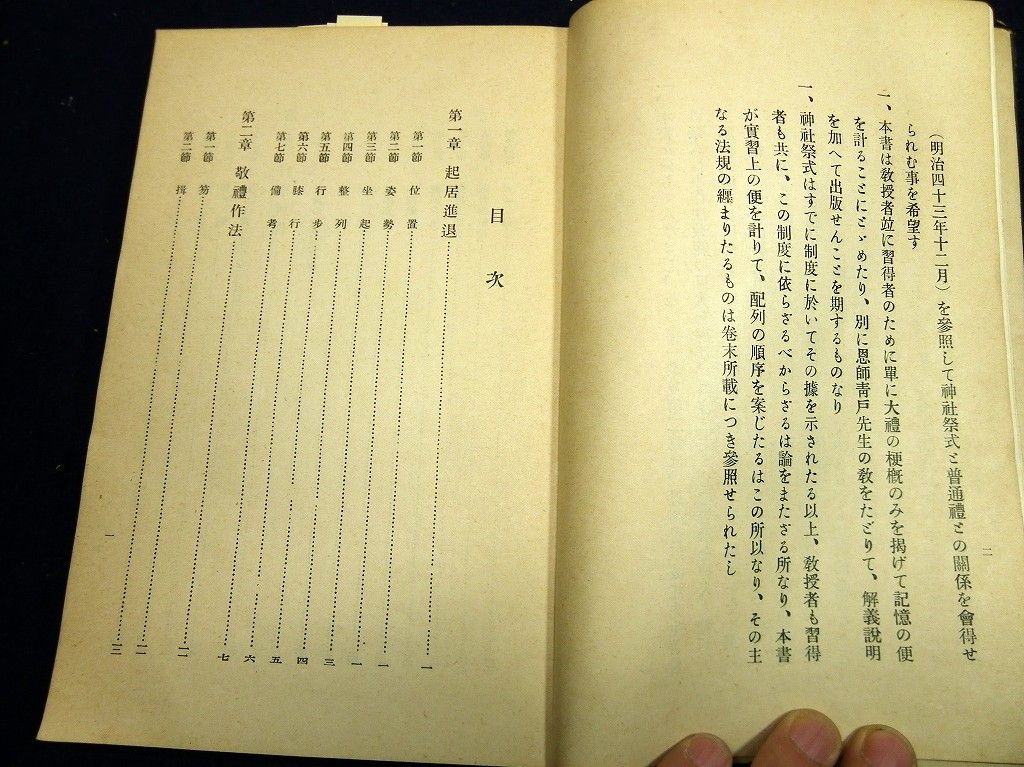 二
(明治四十三年十二月)を參照して神社祭式と普通禮との關係を會得せ
られむ事を希望す
一、本書は敎授者竝に習得者のために單に大禮の梗槪のみを揭げて記憶の便
を計ることにとゞめたり、別に恩師靑戶先生の敎をたどりて、解義說明
を加へて出版せんことを期するものなり
一、神社祭式はすでに制度に於いてその據を示されたる以上、敎授者も習得
者も共に、この制度に依らさるべからさるは論をまたざる所なり、本書
が實習上の便を計りて、配列の順序を案じたるはこの所以なり、その主
なる法規の纒まりたるものは卷末所載につき參照せられたし
目次
第一章 起居進退……一
第一節 位置……一
第二節 姿勢……一
第三節 坐起……一
第四節 整列……三
第五節 行步……四
第六節 膝行……五
第七節 備考……六
第二章 敬禮作法……七
第一節 笏
第二節 揖
一